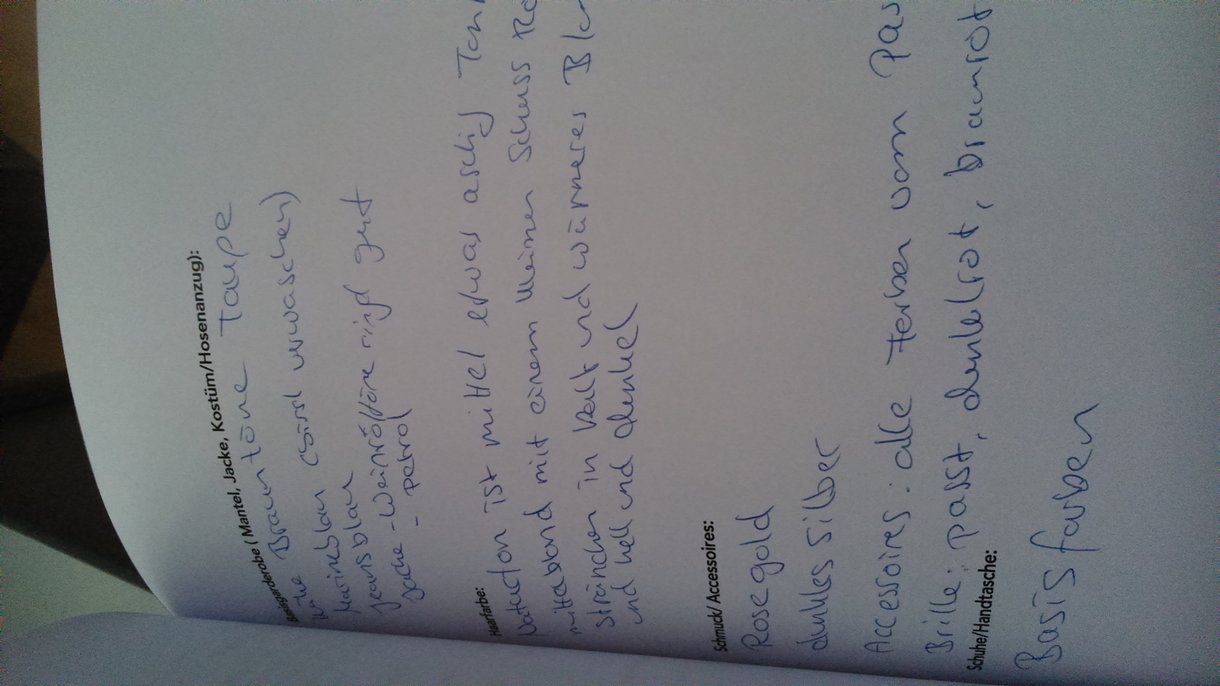 Basisgarderobe ( Mantel, Jacke, Kostüm/Hosenanzug):
Brauntöne Taupe
Marineblau (sonst verwaschen)
Jeansblau
Jacke - Weinrottöne sind gut
- petrol
Haarfarbe:
Naturton ist mittel etwas aschig
mittelblond mit einem kleinen Schuss
Strähnchen in kalt und wärmeres
und hell und dunkel
Schmuck/ Accessoires:
Rosegold
dunkles Silber
Accessoires: alle Farben vom
Brille: passt, dunkelrot, braunrot
Schuhe/Handtasche:
Basisfarben